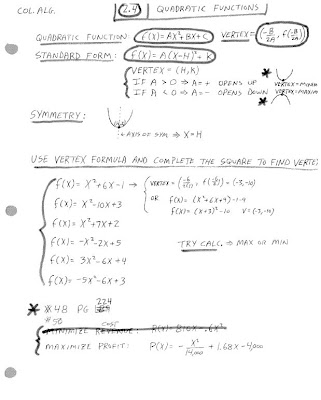 COL. ALG. 2.4 QUADRATIC FUNCTIONS
QUADRATIC FUNCTION: f(X) = AX²+BX+C VERTEX = (-B/2A, f(-B/2A))
STANDARD FORM: f(X) = A(X-H)²+K
VERTEX = (H,K)
IF A > 0 ⇒ A=+ OPENS UP VERTEX=MINIMUM
IF A < 0 ⇒ A=- OPENS DOWN VERTEX=MAXIMUM
SYMMETRY:
AXIS OF SYM ⇒ X=H
USE VERTEX FORMULA AND COMPLETE THE SQUARE TO FIND VERTEX
f(X) = X²+6X-1 → VERTEX = (-6/2(1), f(-6/2)) = (-3,-10)
OR f(X) = (X²+6X+9)-1-9
f(X) = (X+3)²-10 V=(-3,-10)
f(X) = X²-10X+3
f(X) = X²+7X+2
f(X) = -X²-2X+5 TRY CALC. ⇒ MAX OR MIN
f(X) = 3X²-6X+4
f(X) = -5X²-6X+3
* #48 PG 224
#50
MINIMIZE REVENUE: COST
MAXIMIZE PROFIT: P(X) = - X²/14,000 + 1.68X - 4,000